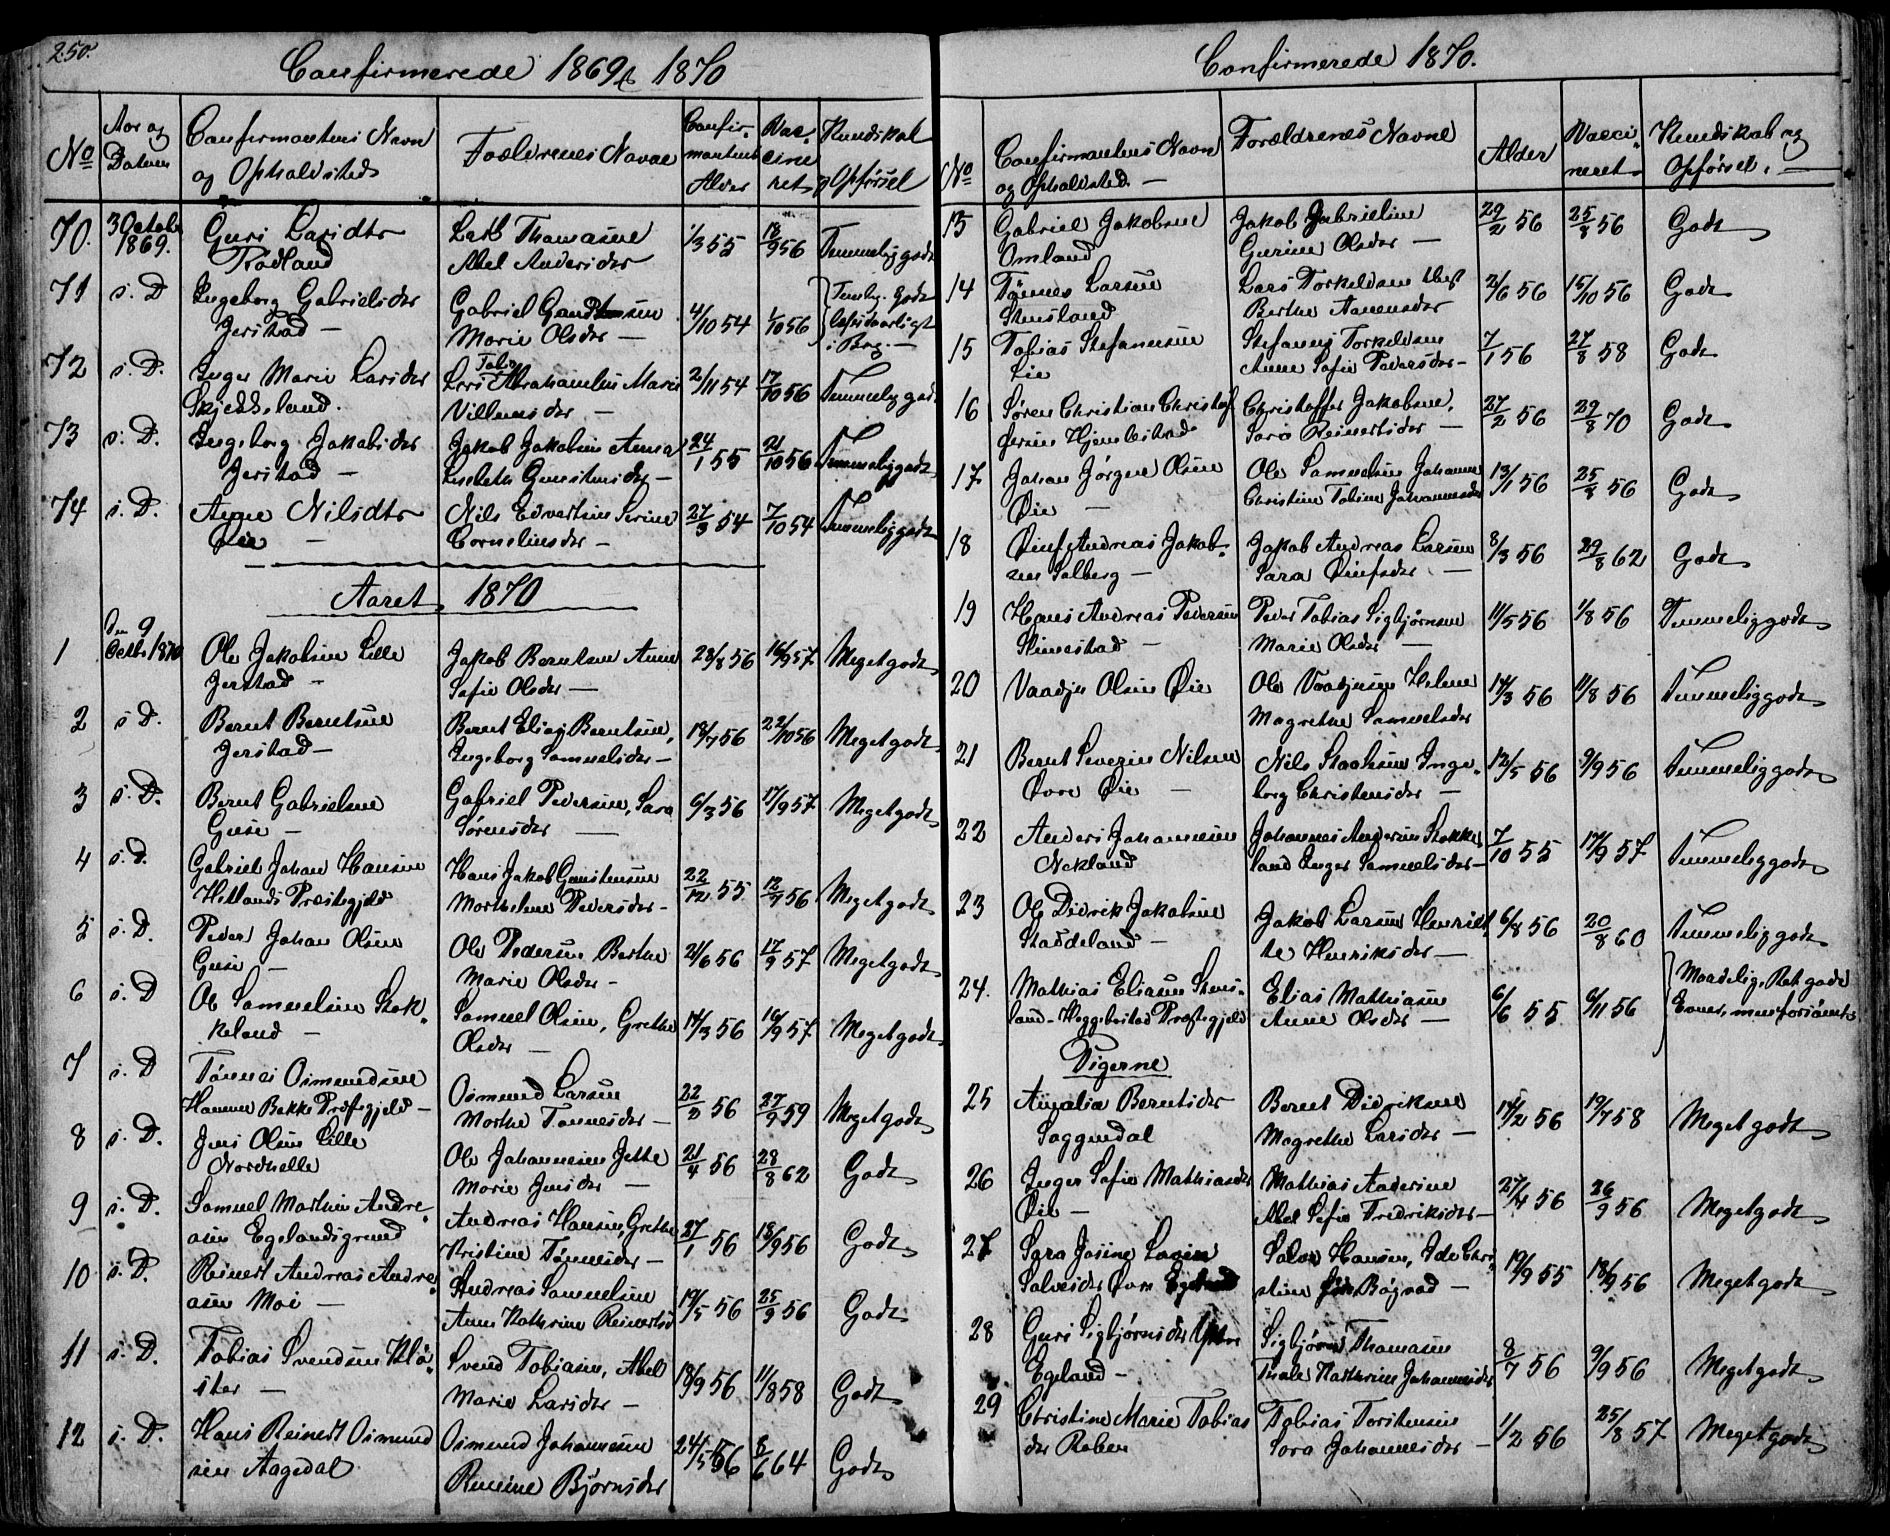 250.
Confirmerede 1869 & 1870
No
Aar og Datum
Confirmantens Navn og Opholdsted
Forældrenes Navne
Confirmantens Alder
Vaccineret
Kundskab og Opførsel
70. 3 October 1869. Guri Larsdtr Rødland
Lars Thomasen Abel Andersdtr 1/3 55 956 Temmelig godt
71 s. D Ingeborg Gabrielsdtr Jerstad –
Gabriel Marie Olsdtr – 4/10 54 1/10 56 Temlig. Godt i Brg. –
72 s. D. Inger Marie Larsdtr Skjekkeland.
Lars Abrahamsen Marie Villumsdtr – 2/11 54 17/10 56 Temmelig godt
73 s. D. Ingeborg Jakobsdtr Jerstad –
Jakob Jakobsen Anna Lisbeth Gunstensdtr – 24/1 55 21/10 56 Temmelig godt
74 s. D. Anne Nilsdtr Øie –
Nils Edvartsen Serine Corneliusdtr – 27/3 54 7/10 54 Temmelig godt
Aaret 1870
1 Den 9 Octbr 1870 Ole Jakobsen Lille Jerstad –
Jakob Berntsen Anne Sofie Olsdtr – 23/8 56 16/9 57 Meget godt
2 s D. Bernt Berntsen Jerstad –
Bernt Elias Berntsen, Ingeborg Samuelsdtr – 18/7 56 22/10 56 Meget godt
3 s. D. Bernt Gabrielsen Guse –
Gabriel Pedersen, Sara Sørensdtr – 6/3 56 17/9 57 Meget godt
4 s. D. Gabriel Johan Hansen Hetlands Præstegjeld
Hans Jakob Gunstensen Marthelene Pedersdtr – 22/12 55 12/9 56 Meget godt
5 s. D. Peder Johan Olsen Guse –
Ole Pedersen Berthe Marie Olsdtr – 21/6 56 17/9 57 Meget godt
6 s. D Ole Samuelsen Stokkeland –
Samuel Olsen, Grethe Olsdtr – 14/3 56 16/9 57 Meget godt
7 s. D Tønnes Osmundsen Bakke Præstegjeld –
Osmund Larsen Marthe Tønnesdtr – 22/2 56 27/9 59 Meget godt
8 s. D. Jens Olsen Lille Nordhelle
Ole Johannesen Jette Marie Jensdtr – 21/4 56 28/8 62 Godt
9 s. D. Samuel Martin Andreasen Egelandsgrund
Andreas Hansen, Grethe Kristine Tønnesdtr – 27/1 56 18/9 56 Godt
10 s. D. Reinert Andreas Andreasen Moi –
Andreas Samuelsen Anne Kathrine Reinertsd 19/5 56 25/9 56 Godt
11 s. D. Tobias Svendsen Klo ster –
Svend Tobiasen, Abel Marie Larsdtr – 18/9 56 11/8 58 Godt
12 s. D. Hans Reinert Osmundsen Aagedal
Osmund Johannesen Bjørnsdtr 24/5 56 8/6 64 Godt
Confirmerede 1870.
No
Confirmantens Navn og Opholdsted. –
Forældrenes Navne
Alder
Vaccineret
Kundskab og Opførsel. –
13 Gabriel Jakobsen Omland
Jakob Gabrielsen Gurine Olsdtr – 29/2 56 25/8 56 Godt
14 Tønnes Larsen Stensland
Lars Torkeldsen Berthe Aanensdtr 2/6 56 15/10 56 Godt
15 Tobias Stefanusen Øie
Stefanus Torkeldsen Anne Sofie Pedersdtr – 7/1 56 27/8 58 Godt
16 Søren Christian Christoffersen
Christoffer Jakobsen, Sara Reinertsdtr – 27/2 56 29/8 70 Godt
17 Johan Jørgen Olsen Øie –
Ole Samuelsen Johanne Christine Tobine Johannesdtr 13/1 56 25/8 56 Godt
18 Øinf Andreas Jakobsen Solberg –
Jakob Andreas Larsen Sara Øinfsdtr – 8/3 56 29/8 62 Godt
19 Hans Andreas Pedersen –
Peder Tobias Sigbjørnsen Marie Olsdtr – 11/5 56 1/8 56 Temmelig godt
20 Vaadje Olsen Øie
Ole Vaadjesen Helene Magrethe Samuelsdtr 14/3 56 11/8 56 Temmelig godt
21 Bernt Severin Nilsen Øvre Øie –
Nils Ingeborg Christensdtr – 12/5 56 9/9 56 Temmelig godt
22 Anders Johannesen Nekland
Johannes Andersen Stokkeland Inger Samuelsdtr – 7/10 55 17/9 57 Temmelig godt
23 Ole Didrik Jakobsen Staddeland –
Jakob Larsen Henriette Henriksdtr – 6/8 56 20/8 60 Temmelig godt
24. Mathias Eliasen Stensland – Heggebostad Præstegjeld
Elias Mathiasen Anne Olsdtr – 6/6 55 6/11 56 Maadelig. Ret gode Evner, men forsømt
Pigerne
25 Amalia Berntsdtr Saggendal
Bernt Didriksen Magrethe Larsdtr – 14/2 56 19/7 58 Meget godt
26 Inger Sofie Mathiasdtr Øie –
Mathias Andersen Abel Sofie Fredriksdtr – 27/4 56 26/9 56 Meget godt
27 Sara Josine Salvesdtr Øvre Egeland
Salve Hansen, Ida Christine Bøgvad – 19/9 55 18/9 56 Meget godt
28 Guri Sigbjørnsdtr Ytre Egeland –
Sigbjørn Thomasen Thale Kathrine Johannesdtr 8/7 56 9/9 56 Meget godt
29 Christine Marie Tobiasdtr Raben
Tobias Torstensen Sara Johannesdtr – 1/2 56 25/8 57 Meget godt